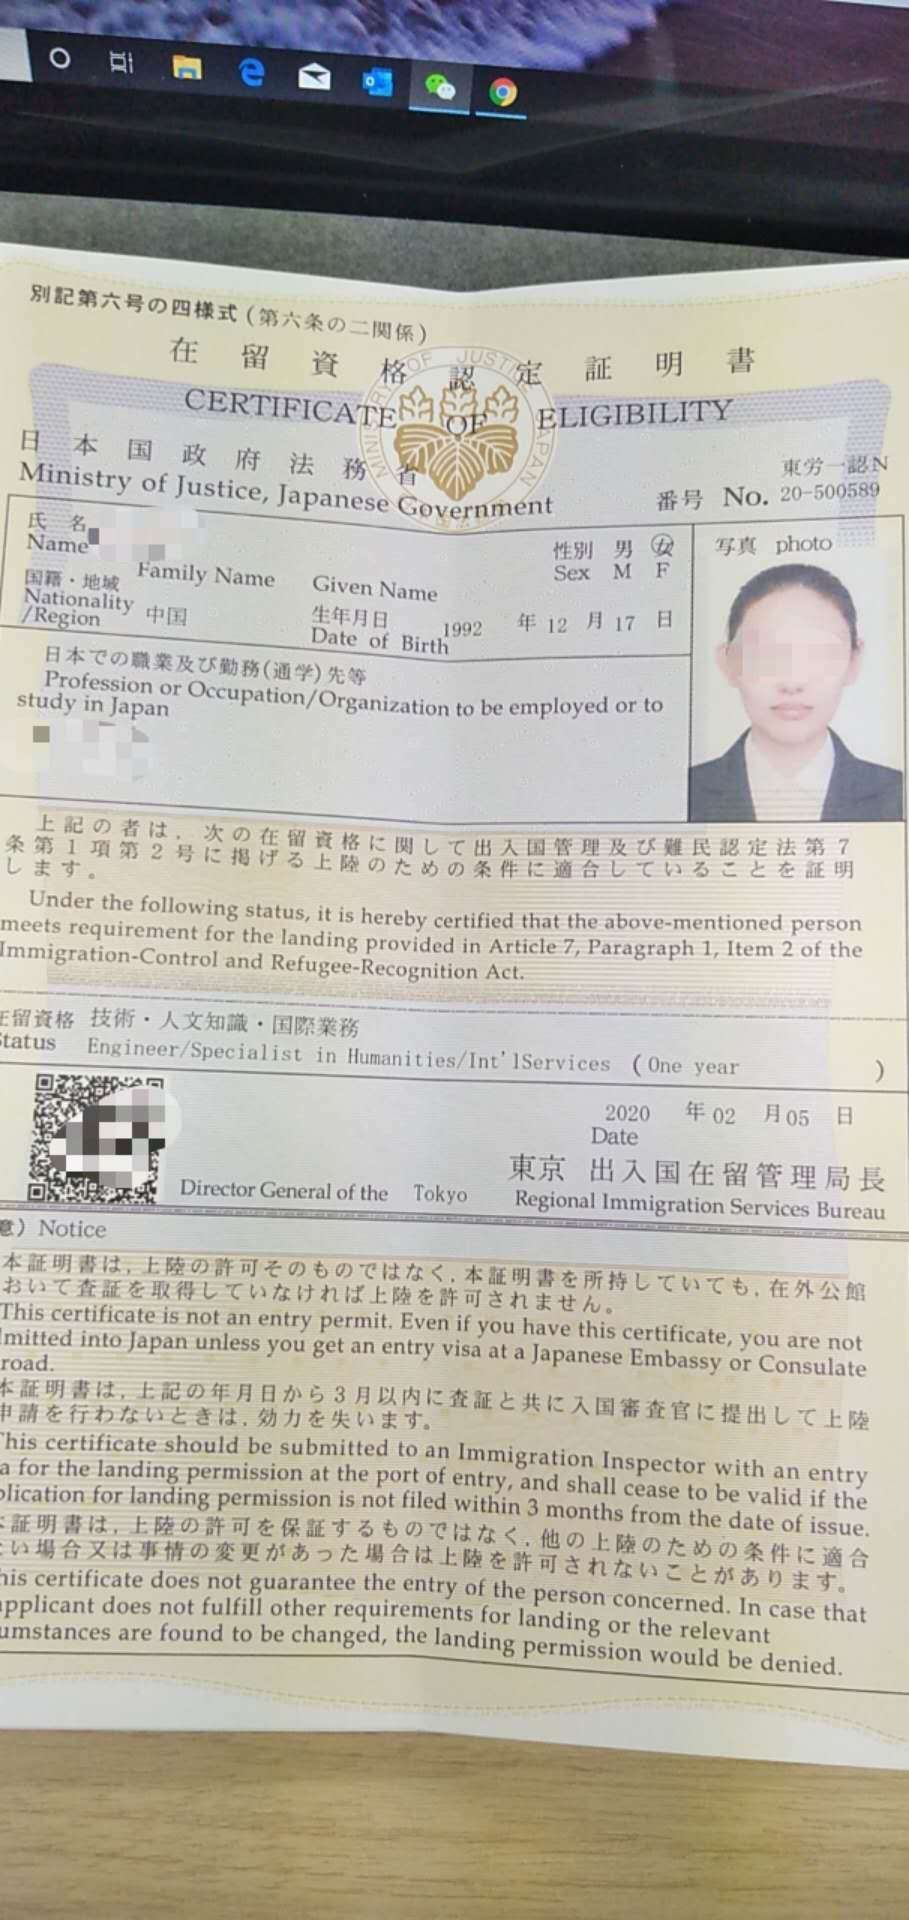 別記第六号の四様式(第六条の二関係)
在留資格認定証明書
CERTIFICATE OF ELIGIBILITY
日本国政府法務省
Ministry of Justice, Japanese Government
東労一認N
番号 No. 20-500589
氏名
Name
Family Name Given Name
性別 男 女
Sex M F
写真 photo
国籍・地域
Nationality
/Region 中国
生年月日
Date of Birth
1992 年 12 月 17 日
日本での職業及び勤務(通学)先等
Profession or Occupation/Organization to be employed or to
study in Japan
上記の者は,次の在留資格に関して出入国管理及び難民認定法第7
条第1項第2号に掲げる上陸のための条件に適合していることを証明
します。
Under the following status, it is hereby certified that the above-mentioned person
meets requirement for the landing provided in Article 7, Paragraph 1, Item 2 of the
Immigration-Control and Refugee-Recognition Act.
在留資格 技術・人文知識・国際業務
Status Engineer/Specialist in Humanities/Int'lServices (One year )
2020 年 02 月 05 日
Date
東京 出入国在留管理局長
Director General of the Tokyo Regional Immigration Services Bureau
意) Notice
本証明書は,上陸の許可そのものではなく,本証明書を所持していても,在外公館
おいて査証を取得していなければ上陸を許可されません。
This certificate is not an entry permit. Even if you have this certificate, you are not
dmitted into Japan unless you get an entry visa at a Japanese Embassy or Consulate
road.
本証明書は,上記の年月日から3月以内に査証と共に入国審査官に提出して上陸
申請を行わないときは,効力を失います。
This certificate should be submitted to an Immigration Inspector with an entry
a for the landing permission at the port of entry, and shall cease to be valid if the
plication for landing permission is not filed within 3 months from the date of issue.
本証明書は,上陸の許可を保証するものではなく,他の上陸のための条件に適合
ない場合又は事情の変更があった場合は上陸を許可されないことがあります。
his certificate does not guarantee the entry of the person concerned. In case that
applicant does not fulfill other requirements for landing or the relevant
umstances are found to be changed, the landing permission would be denied.